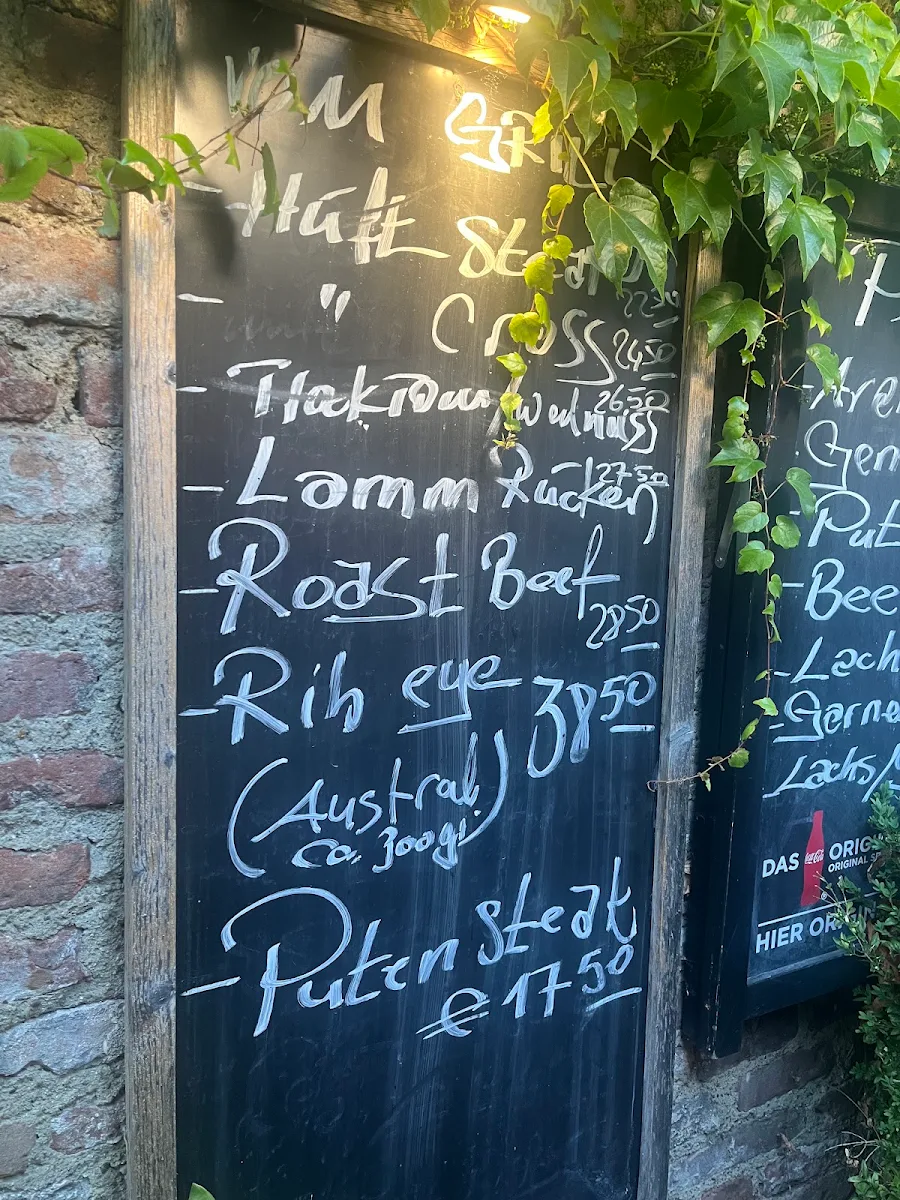 Vom Grill
- Hüft Steak
22.50
- " Gross 24.50
- Hackroum/walnuss 26.50
- Lamm Rücken 27.50
- Roast Beef
28.50
- Rib eye 38.50
(Austral.
ca. 300g.)
- Puten Steak
€ 17.50
- Gar
- Put
- Bee
- Lach
- Garne
Lachs/
DAS Coca-Cola ORIG
ORIGINAL
HIER ORIGIN